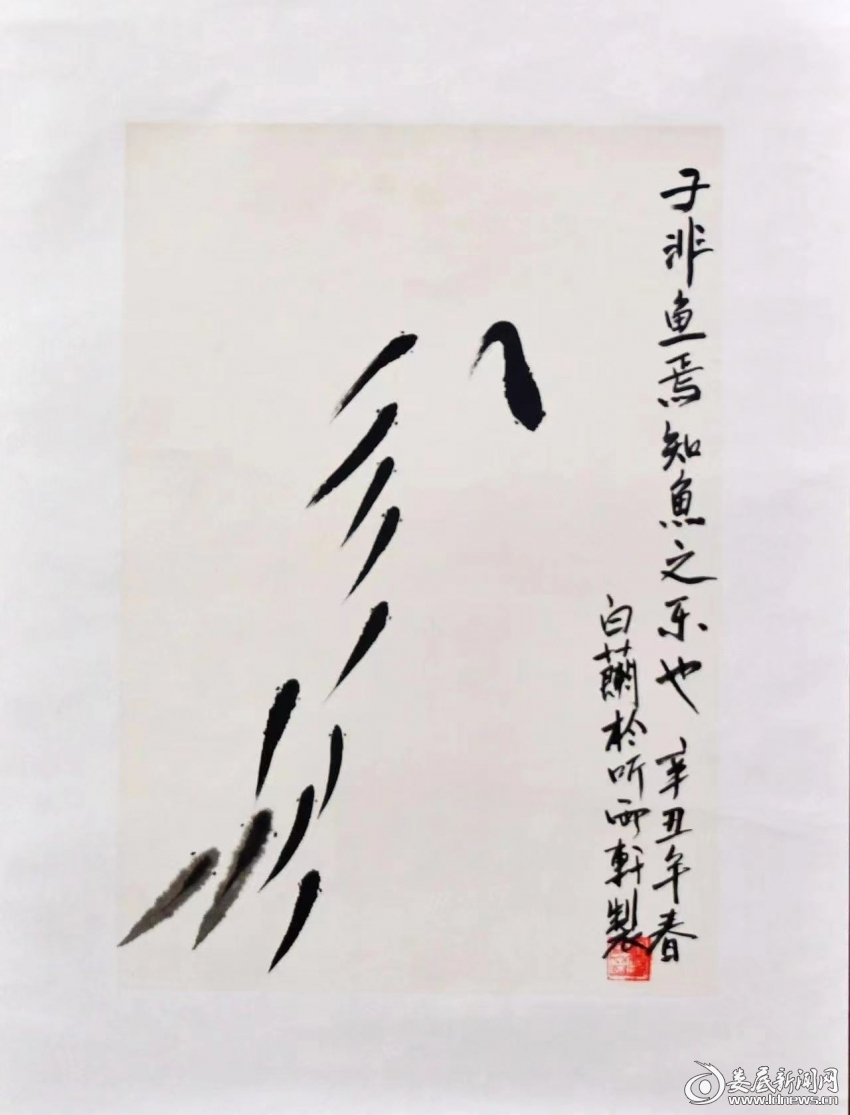 子非鱼焉知鱼之乐也 辛丑年春
白蘭於听雨軒製
娄底新闻网
www.ldnews.cn